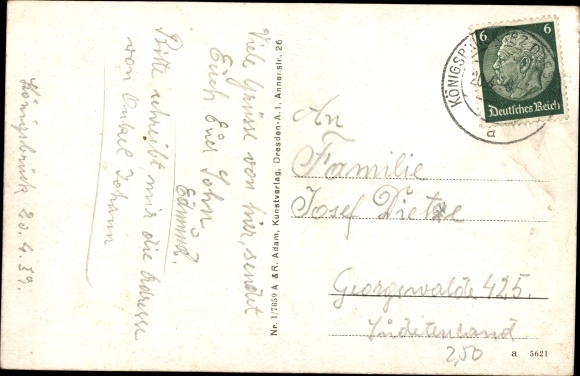 Königsbrück 20.4.39.
Viele Grüsse von hier, sendet
Euch Euer Sohn
Edmund.
Bitte schreibt mir die Adresse
von Onkel Johann
Nr. 1/7859 A & R. Adam, Kunstverlag, Dresden-A. 1, Annenstr. 26
6 6
Deutsches Reich
a
An
Familie
Josef Dietze
Georgswalde 425.
Sudetenland
2,50
a 5621